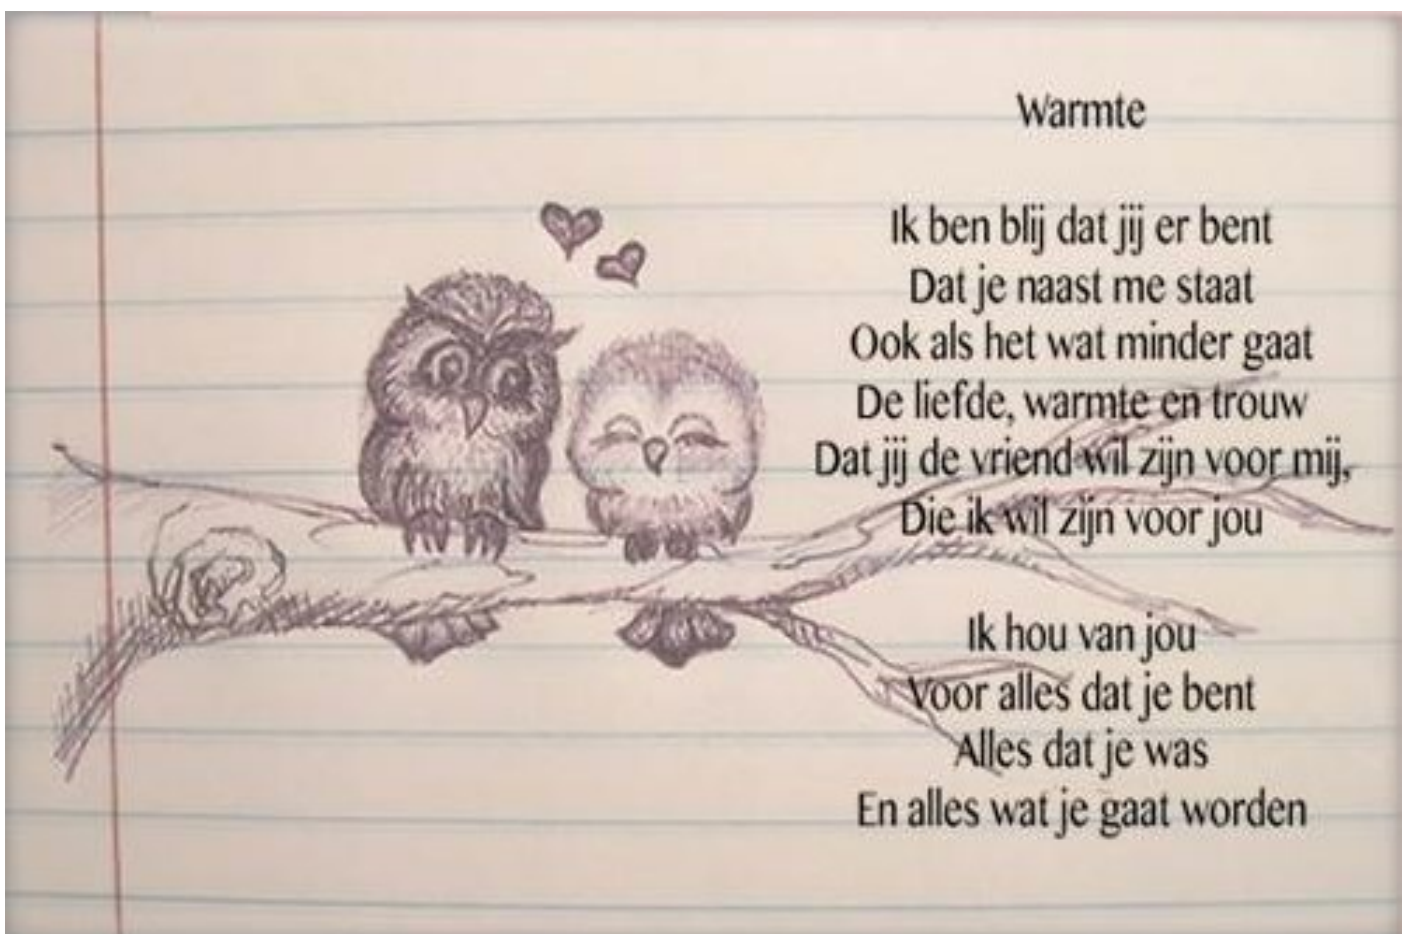 Warmte
Ik ben blij dat jij er bent
Dat je naast me staat
Ook als het wat minder gaat
De liefde, warmte en trouw
Dat jij de vriend wil zijn voor mij,
Die ik wil zijn voor jou
Ik hou van jou
Voor alles dat je bent
Alles dat je was
En alles wat je gaat worden